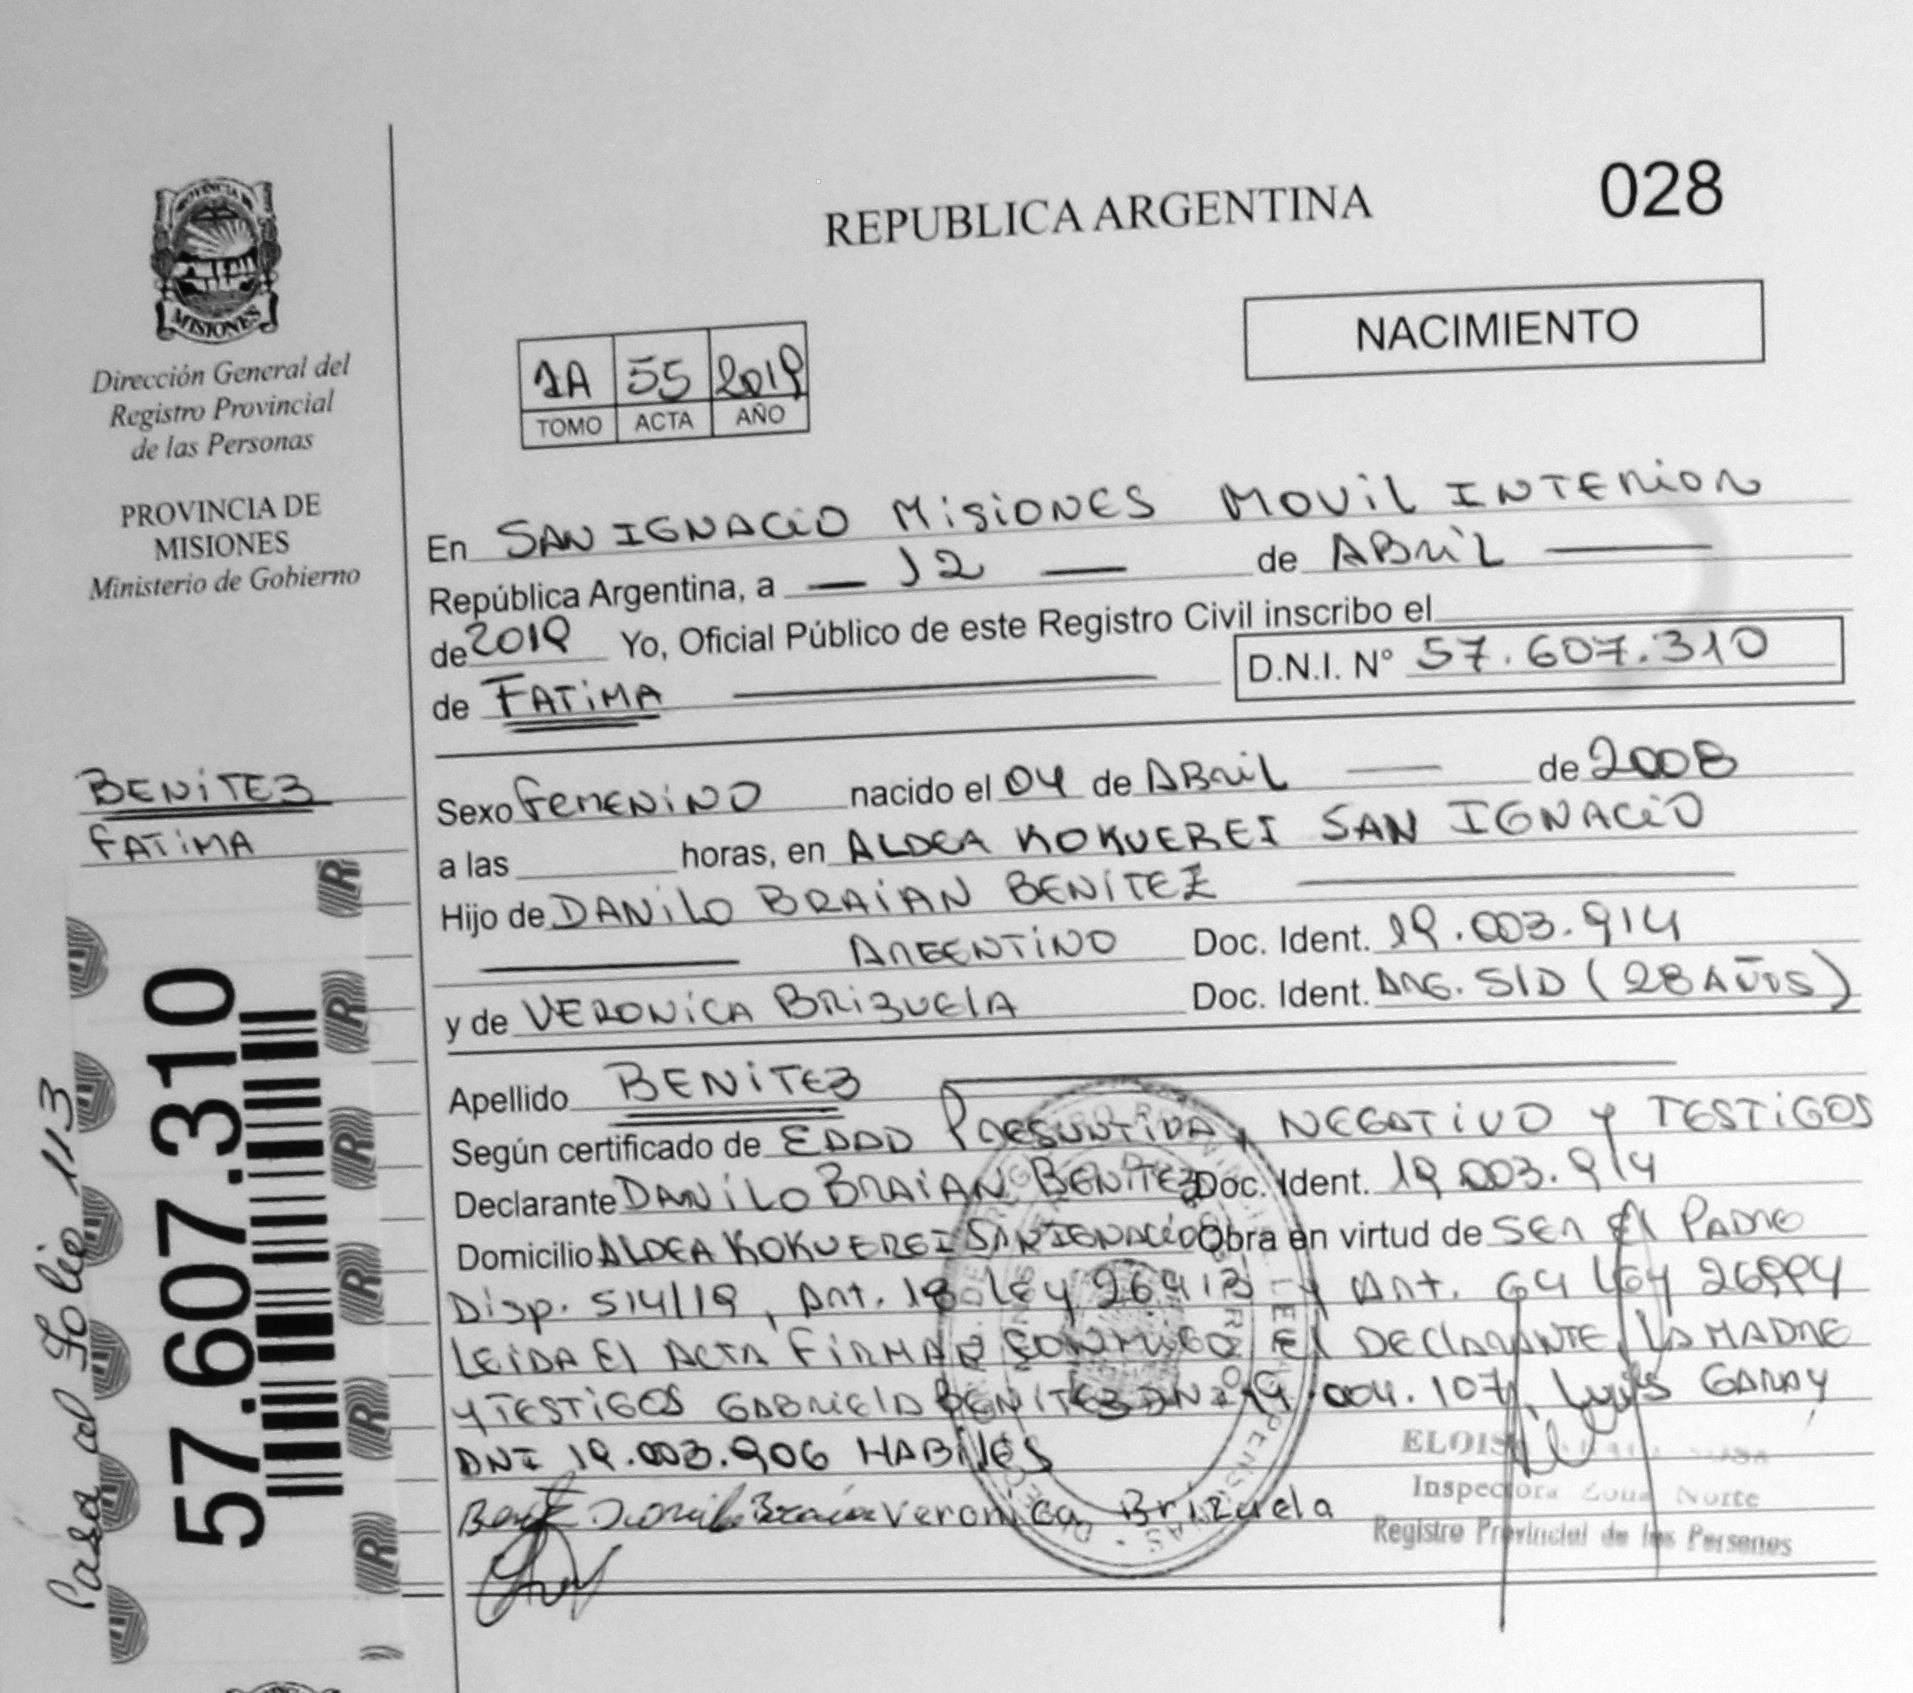 028
REPUBLICA ARGENTINA
NACIMIENTO
PROVINCIA DE
MISIONES
Dirección General del
Registro Provincial
de las Personas
PROVINCIA DE
MISIONES
Ministerio de Gobierno
1A 55 2019
TOMO ACTA AÑO
En SAN IGNACIO MISIONES MOVIL INTERIOR
República Argentina, a — 12 — de ABRIL —
de 2019 Yo, Oficial Público de este Registro Civil inscribo el
de FATIMA — D.N.I. N° 57.607.310
BENITEZ
FATIMA
Sexo FEMENINO nacido el 04 de ABRIL — de 2008
a las horas, en ALDEA KOKUEREI SAN IGNACIO
Hijo de DANILO BRAIAN BENITEZ —
— ARGENTINO Doc. Ident. 19.003.914
y de VERONICA BRIZUELA Doc. Ident. ARG. S/D (28 AÑOS)
Apellido BENITEZ —
Según certificado de EDAD PRESUNTIVA, NEGATIVO Y TESTIGOS
Declarante DANILO BRAIAN BENITEZ Doc. Ident. 19.003.914
Domicilio ALDEA KOKUEREI SAN IGNACIO Obra en virtud de SER El PADRE
Disp. 514/19, Art. 18 ley 26413 y Art. 64 ley 26994
LEIDA El ACTA FIRMAN CONMIGO El DECLARANTE, LA MADRE
Y TESTIGOS GABRIELA BENITEZ DNI 19.004.107, Luis GARAY
DNI 19.003.906 HABILES
Danilo Braian Veronica Brizuela
Inspectora Zona Norte
Registro Provincial de las Personas
57.607.310
Pasa al Folio 113